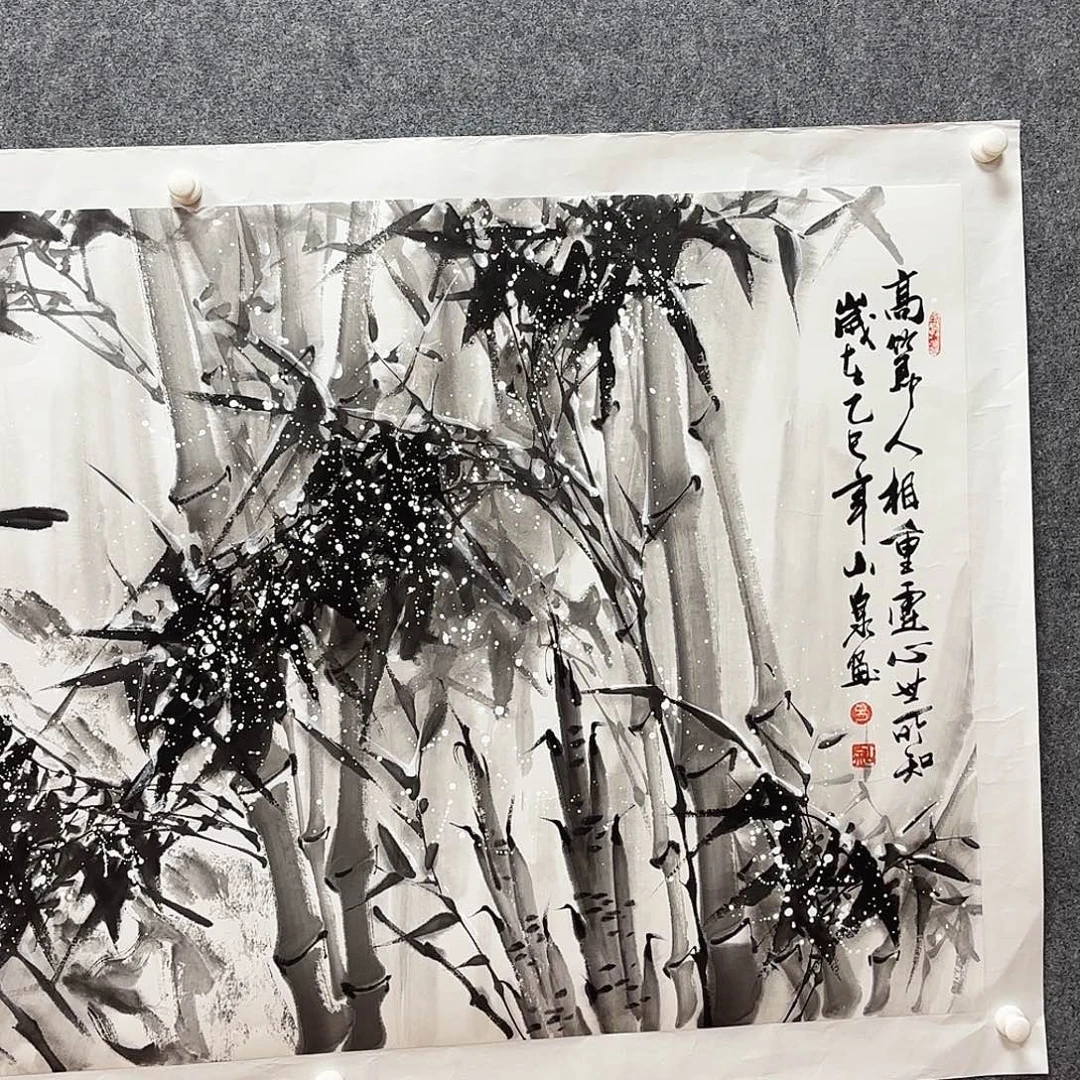 高節人相重虛心世所知
歲在乙巳年山泉畫